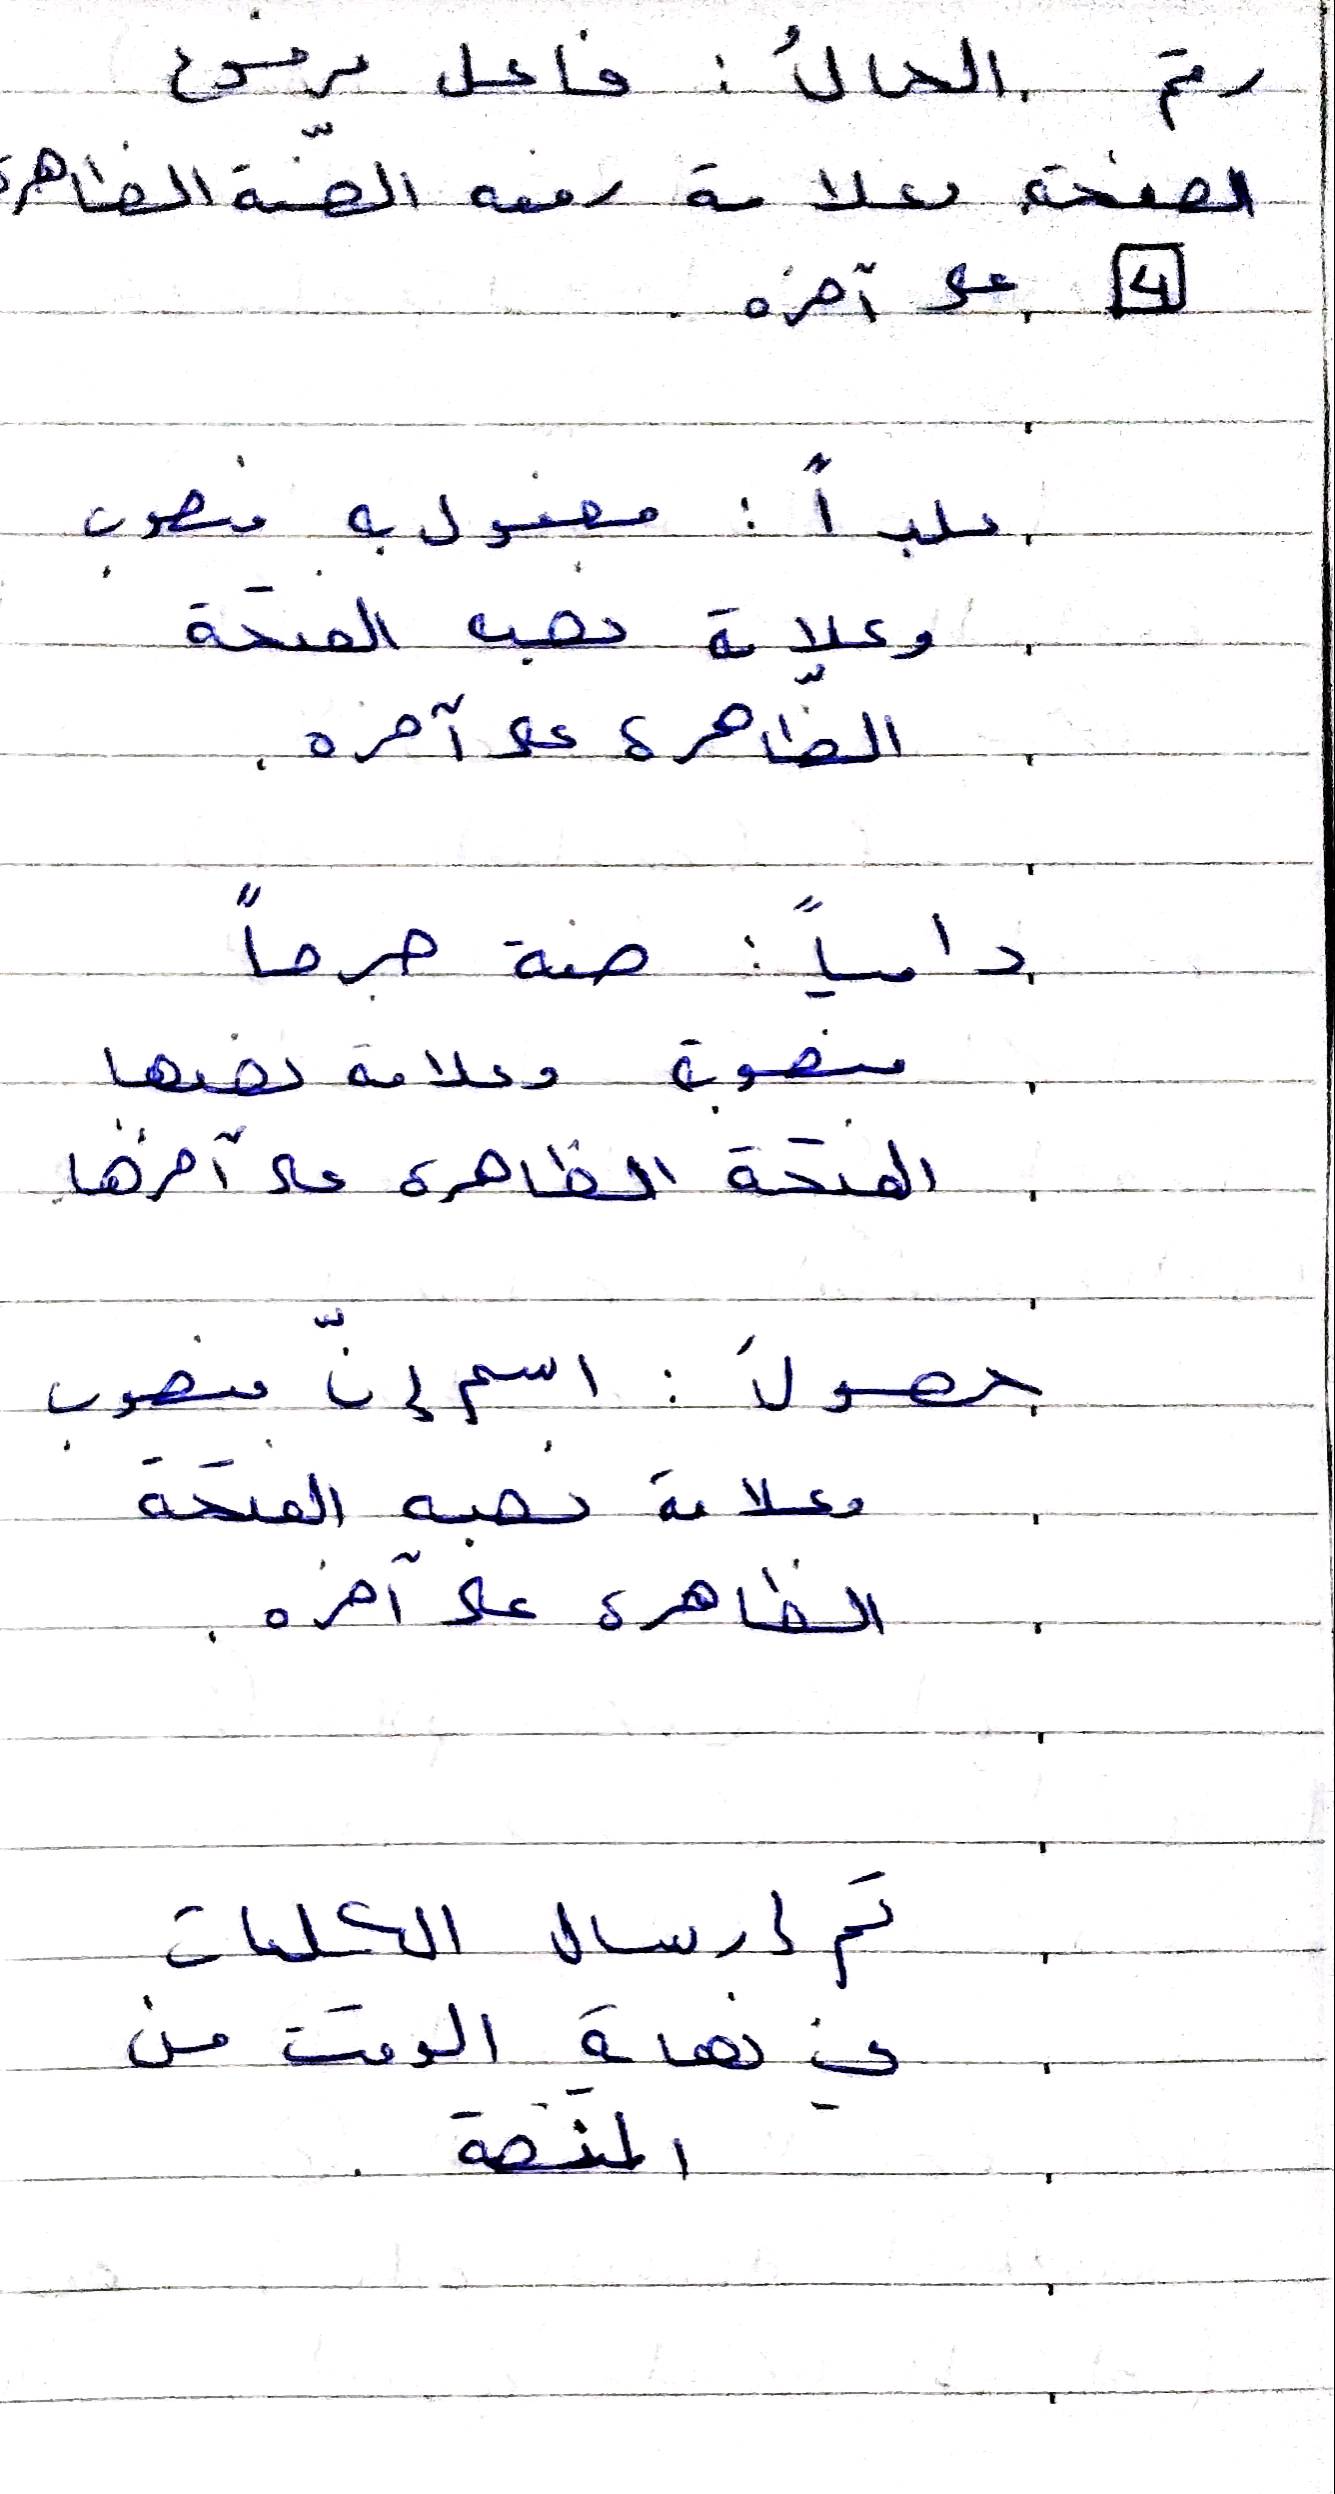 رقم الحالُ : فاعل مرفوع
الصفحة وعلامة رفعه الضمة الظاهرة
4 على آخره .
بلداً : مفعول به منصوب
وعلامة نصبه الفتحة
الظاهرة على آخره .
دامياً : صفة جرحاً
منصوبة وعلامة نصبها
الفتحة الظاهرة على آخرها
حصولَ : اسم إنّ منصوب
وعلامة نصبه الفتحة
الظاهرة على آخره .
تم إرسال الكلمات
في نهاية الوقت من
المنصة .